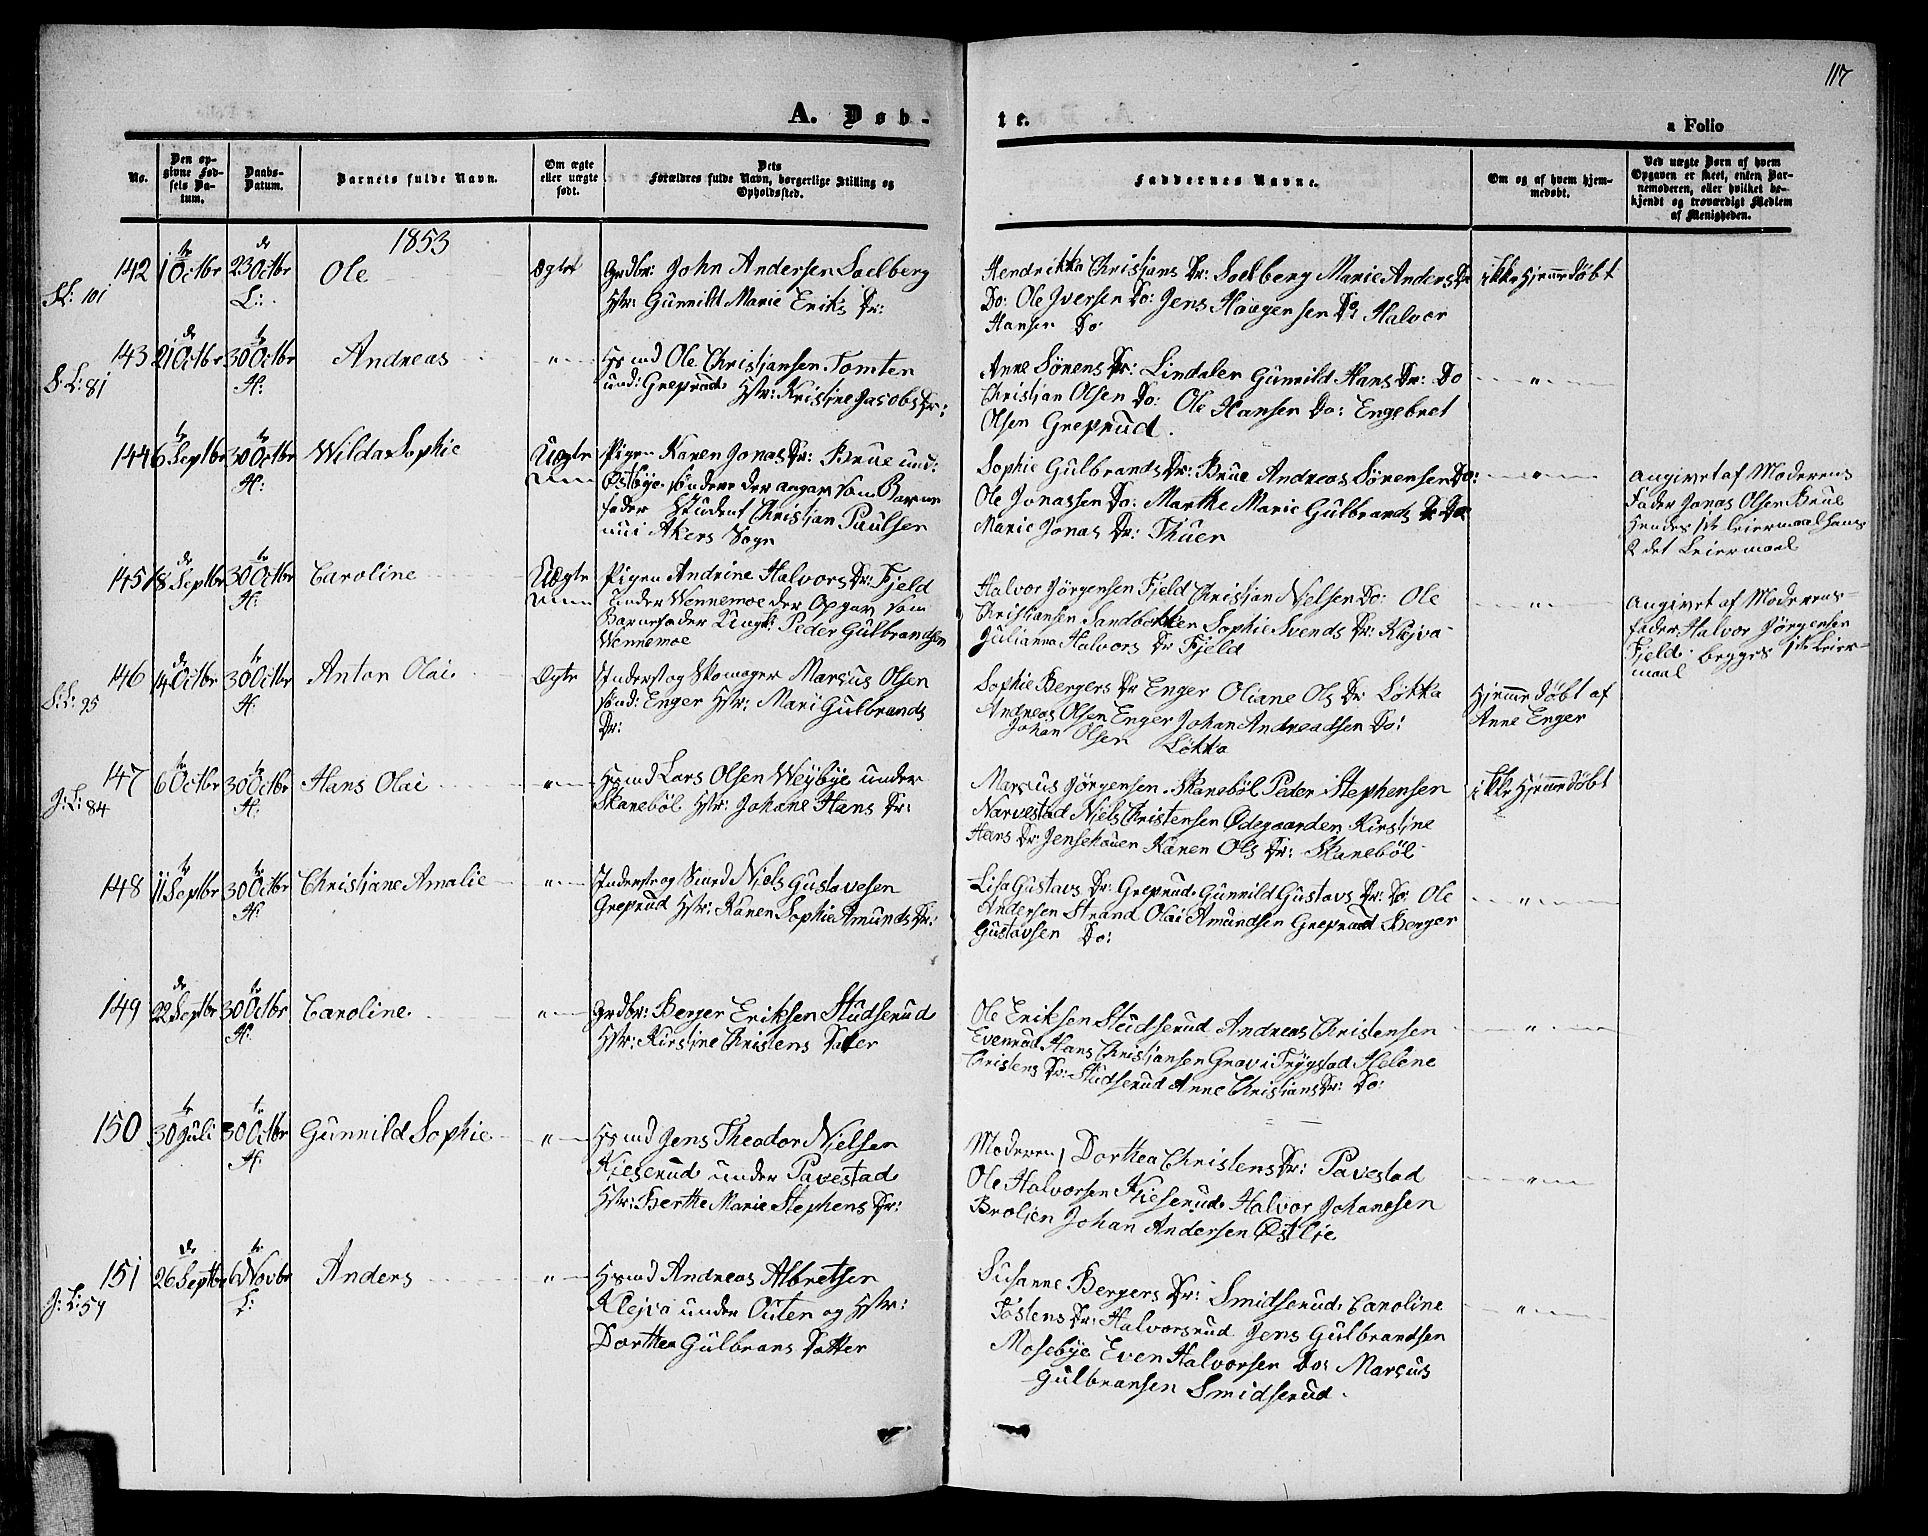 117
A. Døb-
te.
a Folio
No.
Den op-
givne Fød-
sels Da-
tum.
Daabs-
Datum.
Barnets fulde Navn.
Om ægte
eller uægte
født.
Dets
Forældres fulde Navn, borgerlige Stilling og
Opholdssted.
Faddernes Navne.
Om og af hvem hjem-
medøbt.
Ved uægte Børn af hvem
Opgaven er skeet, enten Bar-
nemoderen, eller hvilket be-
kjendt og troværdigt Medlem
af Menigheden.
1853
142 1te Octbr 23de Octbr L: Ole Ægte
S L: 101
Grdbr: John Andersen Soelberg
Hstr: Gunnild Marie Eriks Dr:
Hendrikka Christians Dr: Soelberg Marie Anders Dr
Do: Ole Iversen Do: Jens Haagensen Do Halvor
Hansen Do
ikke Hjemmedøbt
143 21de Octbr 30te Octbr H: Andreas "
S: L: 81
Hsmd Ole Christiansen Tomten
und: Greprud Hstr: Kristine Jacobs Dr:
Anne Sørens Dr: Lindaler Gunnild Hans Dr: Do
Christian Olsen Do: Ole Hansen Do: Engebret
Olsen Greprud.
"
144 6te Septbr 30te Octbr H: Wilda Sophie Uægte
Pigen Karen Jonas Dr: Brue und:
Østbye søndere der angav som Barne
fader Student Christian Paulsen
nu i Akers Sogn
Sophie Gulbrands Dr: Brue Andreas Sørensen Do:
Ole Jonassen Do: Marthe Marie Gulbrands Dr Do
Marie Jonas Dr: Thuer
"
Angivet af Moderens
Fader Jonas Olsen Brue
Hendes 1ste Leiermaal hans
2det Leiermaal
145 18de Septbr 30te Octbr H: Caroline Uægte
Pigen Andrine Halvors Dr: Fjeld
under Wennemoe der Opgav som
Barnefader Ungk: Peder Gulbrandsen
Wennemoe
Halvor Jørgensen Fjeld Christian Nielsen Do: Ole
Christiansen Sandbekken Sophie Svends Dr: Klejva
Julianna Halvors Dr Fjeld
"
Angivet af Moderens
fader Halvor Jørgensen
Fjeld. begges 1ste Leier-
maal
146 14de Octbr 30te Octbr H: Anton Olai Ægte
S: L: 95
Inderst og Skomager Marcus Olsen
und: Enger Hstr: Mari Gulbrands
Dr:
Sophie Bergers Dr Enger Oliane Ols Dr Løkka
Andreas Olsen Enger Johan Andreadsen Do:
Johan Olsen Løkka
Hjemmedøbt af
Anne Enger
147 6te Octbr 30te Octbr H: Hans Olai "
J: L: 84
Hsmd Lars Olsen Weybye under
Skanebøl Hstr: Johane Hans Dr:
Marcus Jørgensen Skanebøl Peder Stephensen
Narvestad Niels Christensen Ødegaarden Kirstine
Hans Dr Jensehouen Karen Ols Dr: Skanebøl
ikke Hjemmedøbt
148 11te Septbr 30te Octbr H: Christiane Amalie "
Inderst og Smed Niels Gustavesen
Greprud Hstr: Karen Sophie Amunds Dr:
Lisa Gustavs Dr: Greprud Gunnild Gustavs Dr: Do Ole
Andersen Strand Olai Amundsen Greprud Berger
Gustavsen Do:
"
149 22de Septbr 30te Octbr H: Caroline "
Grdbr: Berger Eriksen Studserud
Hstr: Kirstine Christens Datter
Ole Eriksen Studserud Andreas Christensen
Evenrud Hans Christiansen Grav i Trygstad Helene
Christens Dr: Studserud Anne Christians Dr: Do:
"
150 30te Juli 30te Octbr H: Gunnild Sophie "
Hsmd Jens Theodor Nielsen
Kieserud under Pavestad
Hstr: Berthe Marie Stephens Dr:
Moderen, Dorthea Christens Dr: Pavestad
Ole Halvorsen Kieserud Halvor Johansen
Broljen Johan Andersen Østlie
"
151 26de Septbr 6te Novbr L: Anders "
J: L: 54
Hsmd Andreas Albretsen
Klejva under Outen og Hstr:
Dorthea Gulbrans Datter
Susanne Bergers Dr: Smidserud Caroline
Tostens Dr: Halvorsrud Jens Gulbrandsen
Mosebye Even Halvorsen Do: Marcus
Gulbransen Smidserud.
"